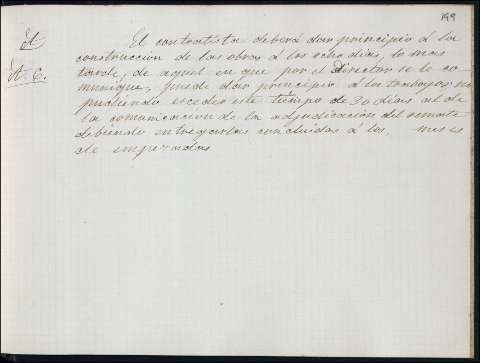 199
El contratista deberá dar principio á la
construccion de las obras á los ocho dias, lo mas
A. C.
tarde, de aquel en que por el Director se le co-
munique, puede dar principio á los trabajos no
pudiendo esceder este tiempo de 30 dias al de
la comunicacion de la adjudicación del remate
debiendo entregarlas concluidas á los, meses
de empezadas